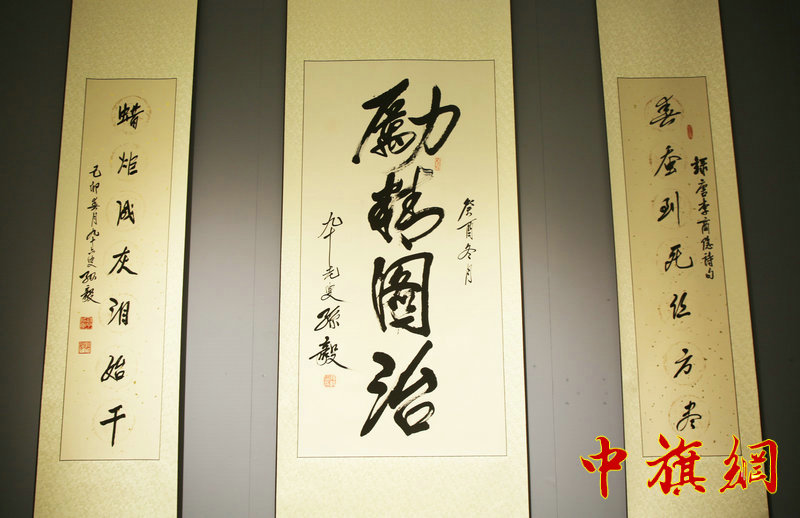 春蚕到死丝方尽
錄唐李商隐詩句
癸酉冬月
勵精圖治
九十老叟孫毅
蜡炬成灰泪始干
己卯月九十六叟孫毅
中旗網